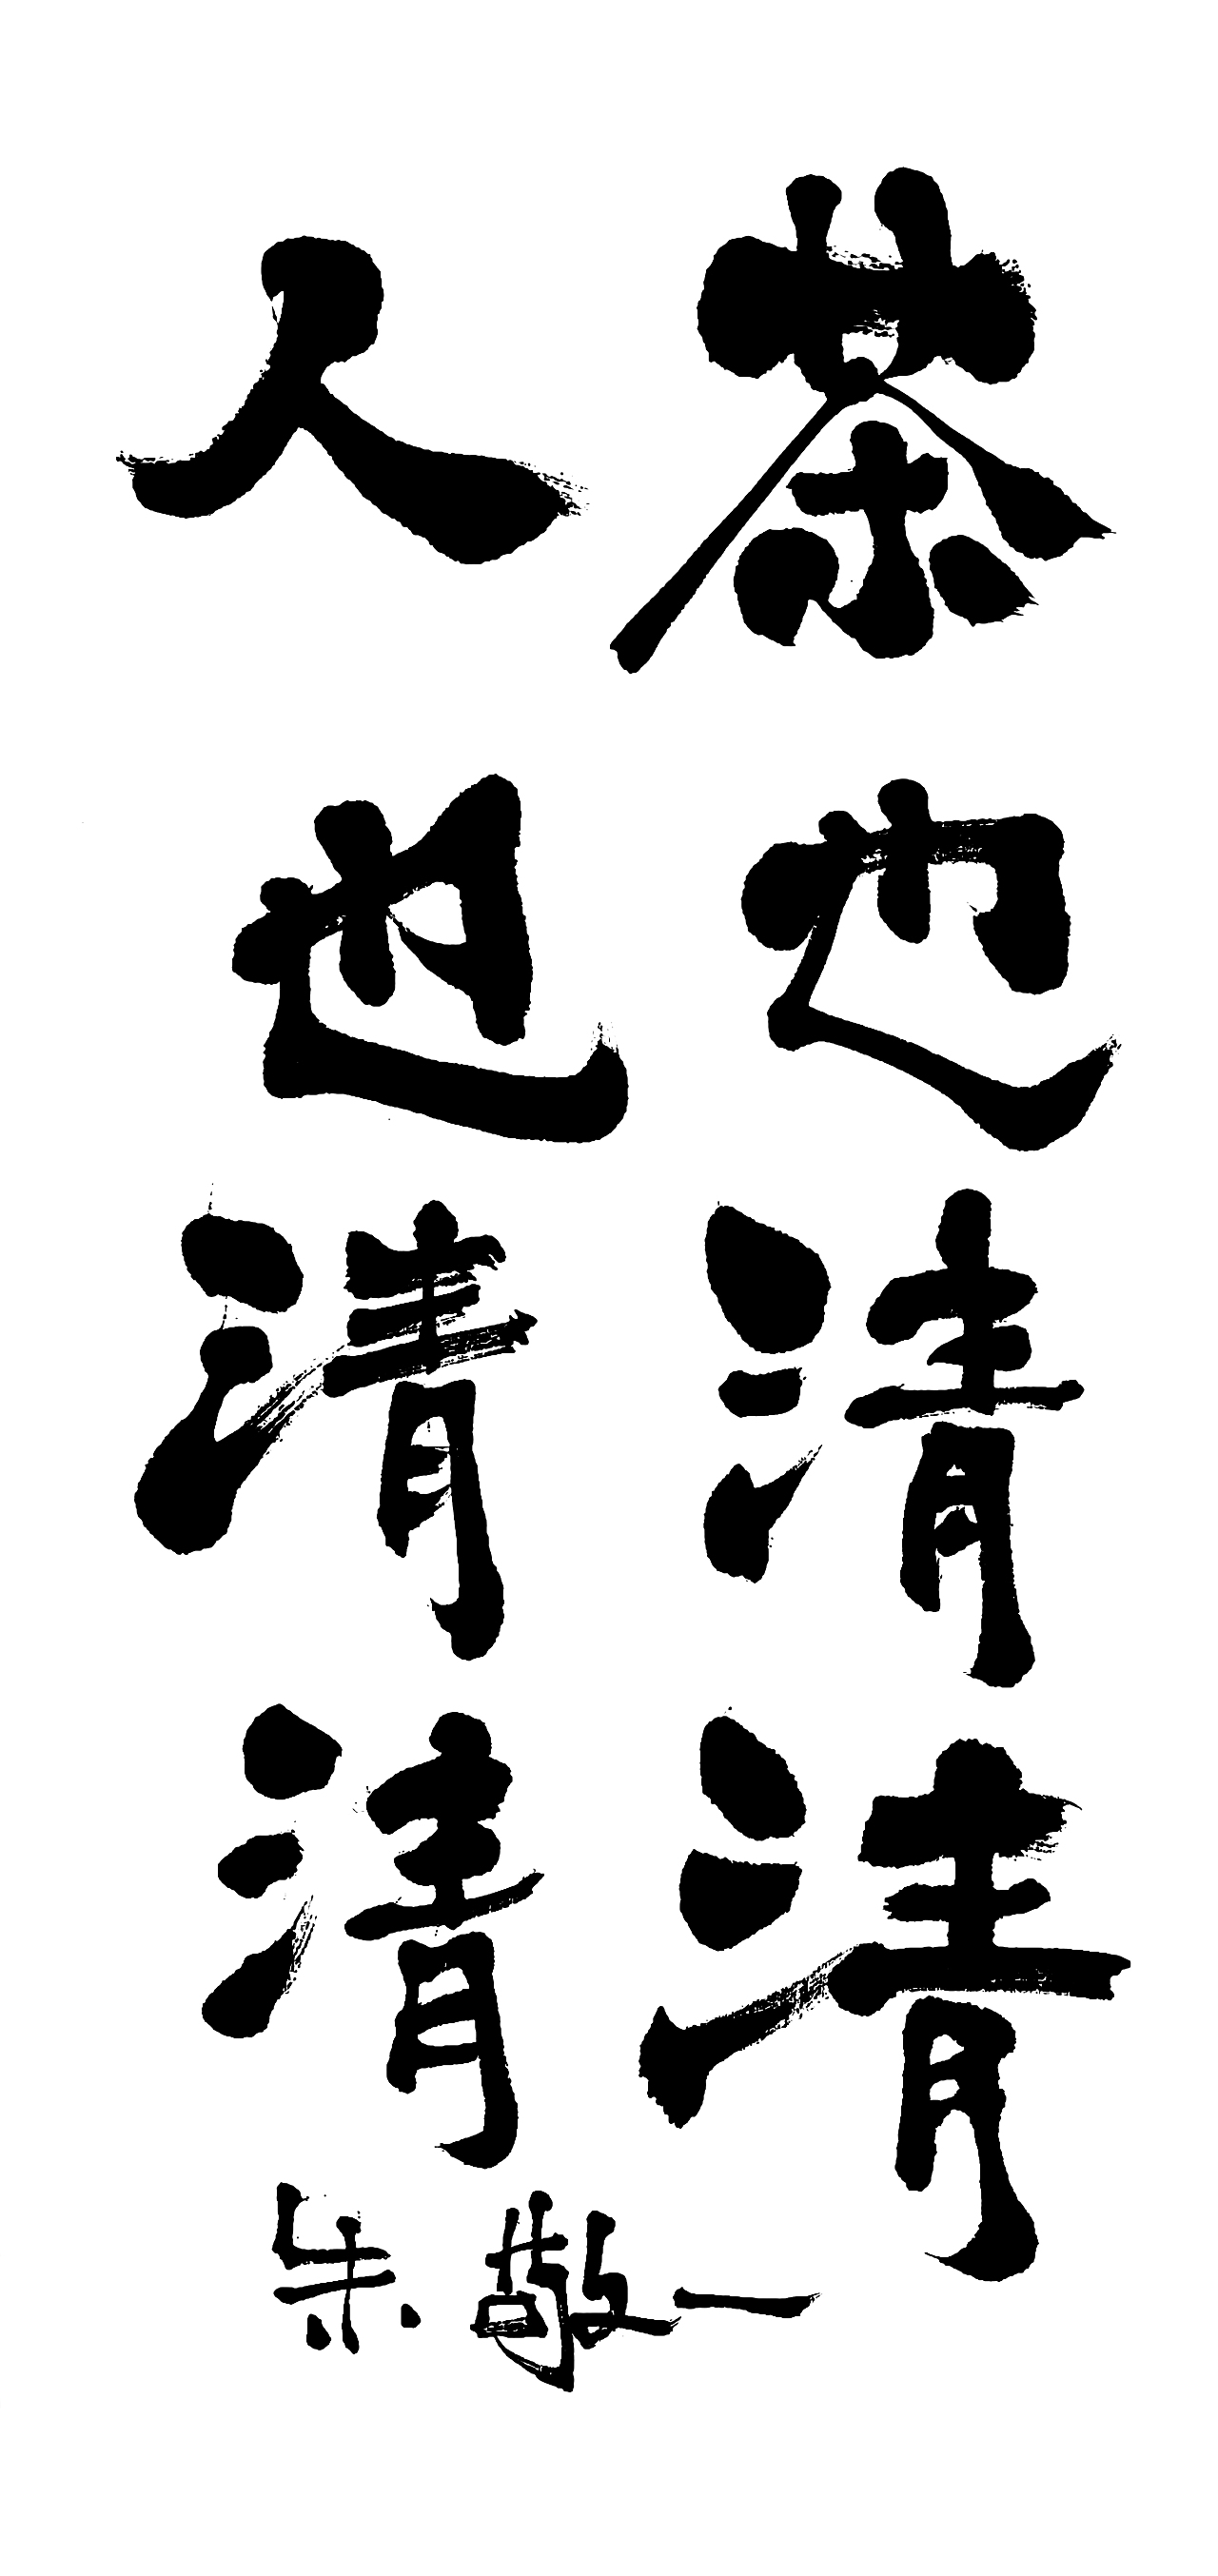 茶也清清
人也清清
朱敬一